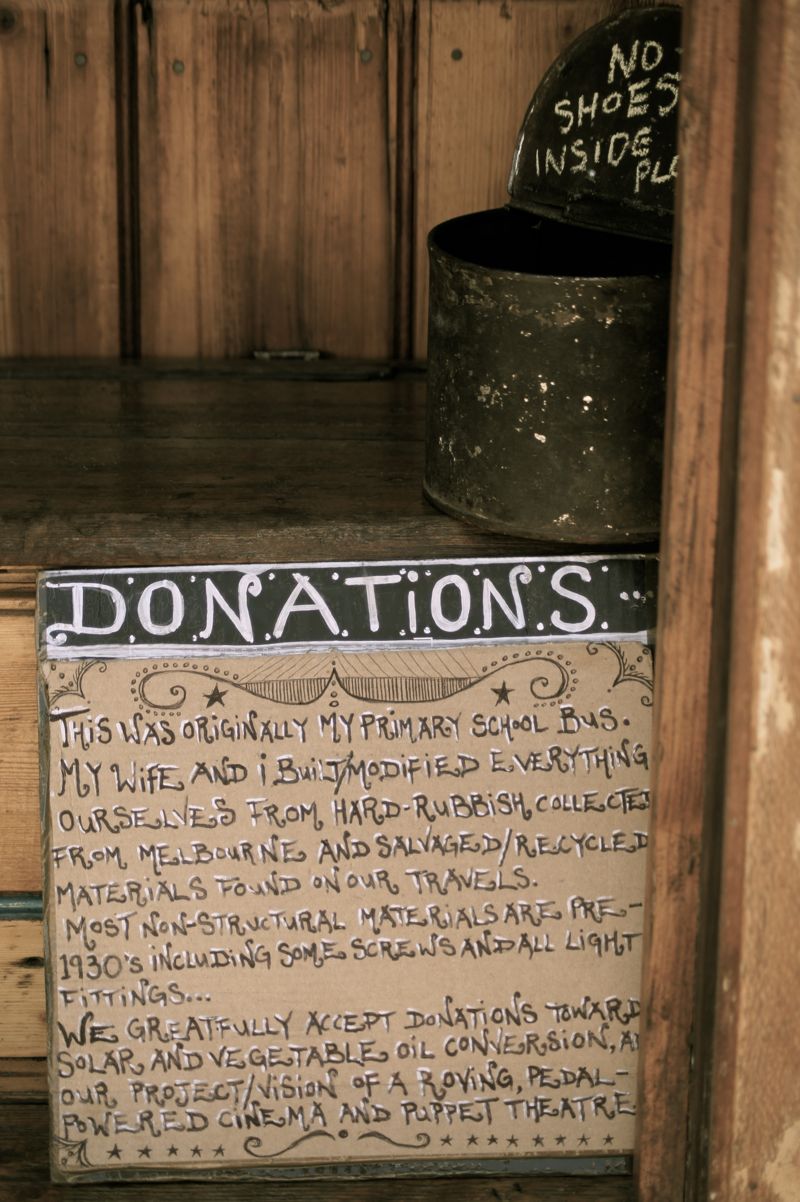 NO
SHOES
INSIDE
DONATIONS..
THIS WAS ORIGINALLY MY PRIMARY SCHOOL BUS.
MY WIFE AND I BUILT/MODIFIED EVERYTHING
OURSELVES FROM HARD-RUBBISH COLLECTED
FROM MELBOURNE AND SALVAGED/RECYCLED
MATERIALS FOUND ON OUR TRAVELS.
MOST NON-STRUCTURAL MATERIALS ARE PRE-
1930'S INCLUDING SOME SCREWS AND ALL LIGHT
FITTINGS...
WE GREATFULLY ACCEPT DONATIONS TOWARD
SOLAR AND VEGETABLE OIL CONVERSION,
OUR PROJECT/VISION OF A ROVING, PEDAL-
POWERED CINEMA AND PUPPET THEATRE